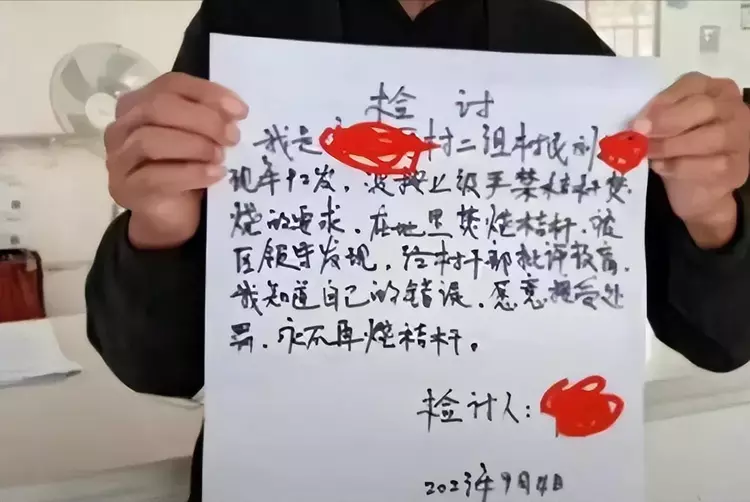 检 讨
我是村二组村民刘
现年92岁，没按上级严禁桔杆焚
烧的要求，在地里焚烧桔杆，被
区领导发现，给村干部批评教育，
我知道自己的错误，愿意接受处
罚，永不再烧秸杆。
检讨人：
2023年9月4日